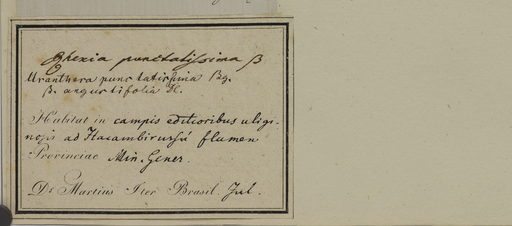 Rhexia punctatissima β
Uranthera punctatissima Bg.
β. angustifolia N.
Habitat in campis editioribus uligi-
nosis ad Itacambirussú flumen
Provinciae Min. Gener.
Dr Martius Iter Brasil. Jul.